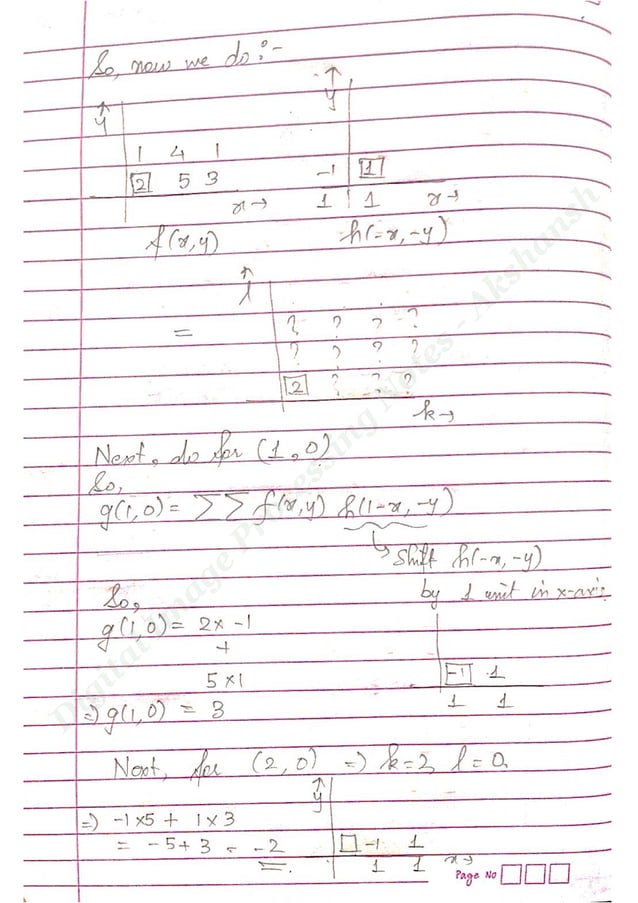 So, now we do :-
↑ y ↑ y
1 4 1
[2] 5 3 -1 [1]
x→ 1 1 x→
f(x,y) h(-x,-y)
↑ l
? ? ? ?
= ? ? ? ?
[2] ? ? ?
k→
Next, do for (1,0)
So,
g(1,0) = ΣΣ f(x,y) h(1-x,-y)
↳ Shift h(-x,-y)
by 1 unit in x-axis
So,
g(1,0) = 2x -1
+
5x1
[-1] 1
1 1
⇒ g(1,0) = 3
Next, for (2,0) ⇒ k=2, l=0
↑ y
⇒ -1x5 + 1x3
= -5+3 = -2
□ -1 1
1 1 x→
Page No
Digital Image Processing Notes - Akshansh